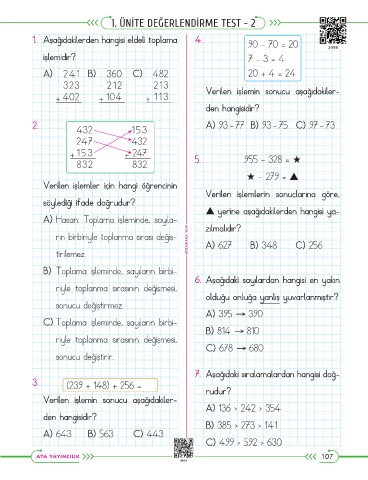 1. ÜNİTE DEĞERLENDİRME TEST - 2
1. Aşağıdakilerden hangisi eldeli toplama
işlemidir?
A) 241 B) 360 C) 482
323 212 213
+ 402 + 104 + 113
2.
432 153
247 432
+ 153 + 247
832 832
Verilen işlemler için hangi öğrencinin
söylediği ifade doğrudur?
A) Hasan: Toplama işleminde, sayıla-
rın birbiriyle toplanma sırası değiş-
tirilemez.
B) Toplama işleminde, sayıların birbi-
riyle toplanma sırasının değişmesi,
sonucu değiştirmez.
C) Toplama işleminde, sayıların birbi-
riyle toplanma sırasının değişmesi,
sonucu değiştirir.
3.
(239 + 148) + 256 =
Verilen işlemin sonucu aşağıdakiler-
den hangisidir?
A) 643 B) 563 C) 443
4.
90 - 70 = 20
7 - 3 = 4
20 + 4 = 24
Verilen işlemin sonucu aşağıdakiler-
den hangisidir?
A) 93 - 77 B) 93 - 75 C) 97 - 73
5.
955 - 328 = ★
★ - 279 = ▲
Verilen işlemlerin sonuçlarına göre,
▲ yerine aşağıdakilerden hangisi ya-
zılmalıdır?
A) 627 B) 348 C) 256
6. Aşağıdaki sayılardan hangisi en yakın
olduğu onluğa yanlış yuvarlanmıştır?
A) 395 → 390
B) 814 → 810
C) 678 → 680
7. Aşağıdaki sıralamalardan hangisi doğ-
rudur?
A) 136 > 242 > 354
B) 385 > 273 > 141
C) 499 > 592 > 630
ATA YAYINCILIK
107